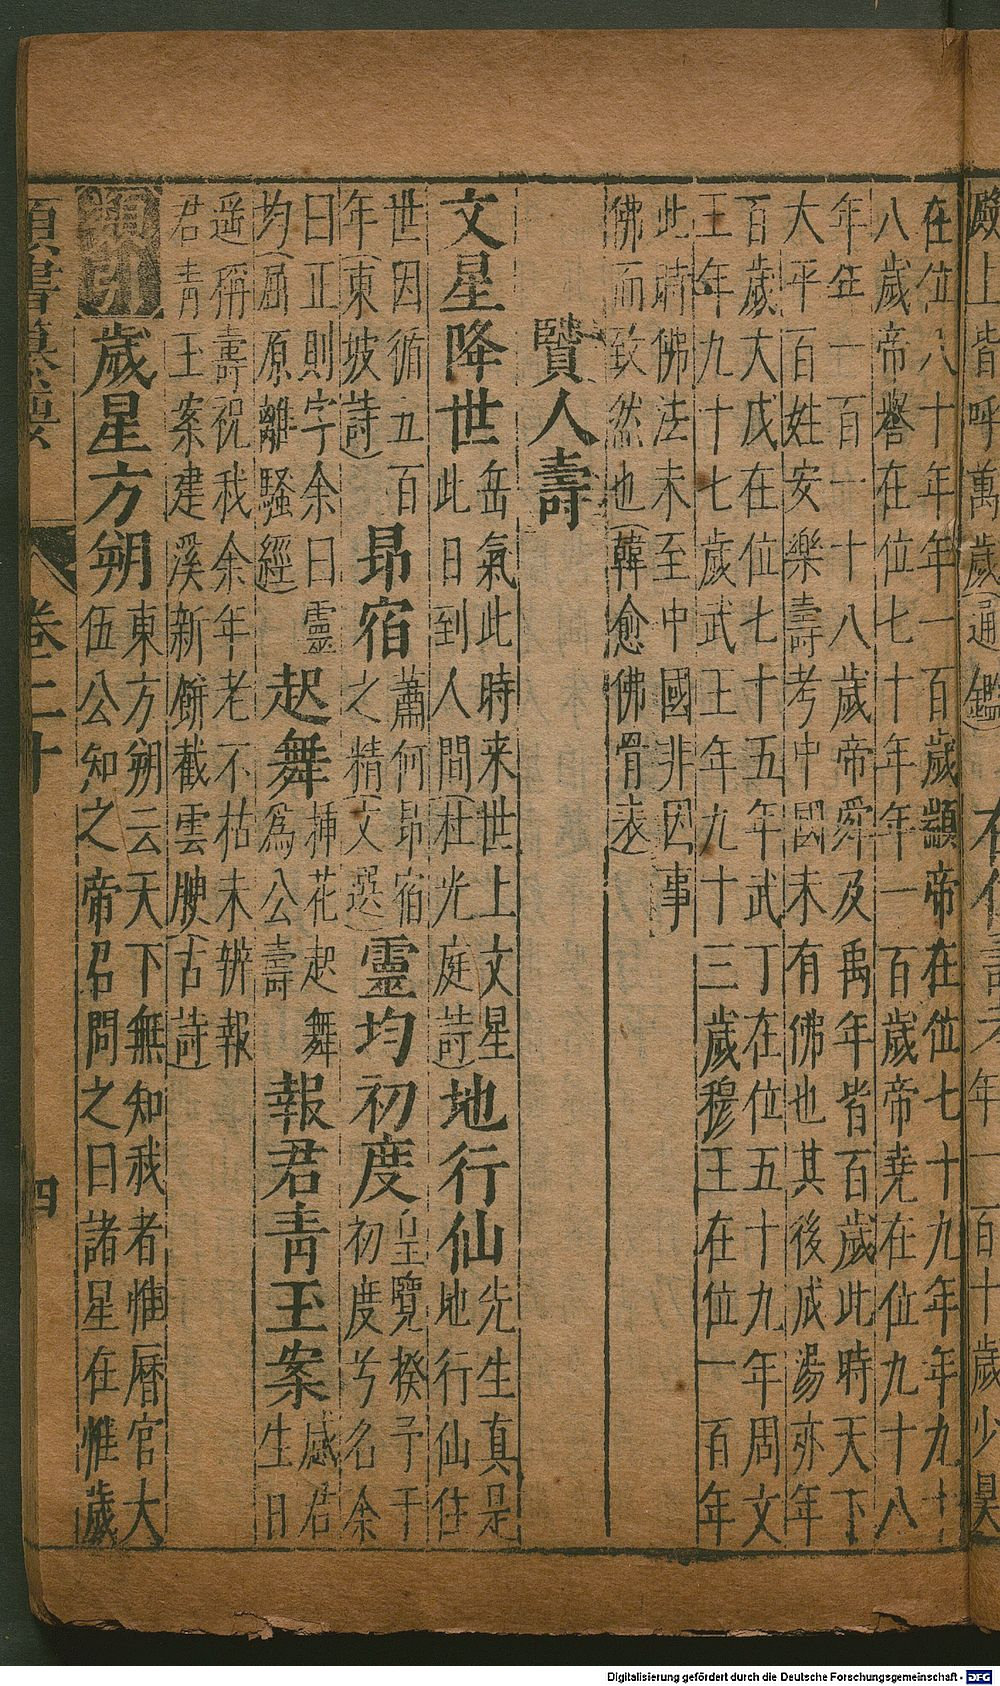 殿上皆呼萬歲(通鑑)
壽考年一百十歲少昊
在位八十年年一百歲顓帝在位七十九年年九十
八歲帝嚳在位七十年年一百歲帝堯在位九十八
年年一百一十八歲帝舜及禹年皆百歲此時天下
大平百姓安樂壽考中國未有佛也其後成湯亦年
百歲大戊在位七十五年武丁在位五十九年周文
王年九十七歲武王年九十三歲穆王在位一百年
此時佛法未至中國非因事
佛而致然也(韓愈佛骨表)
賢人壽
文星降世
岳氣此時来世上文星
此日到人間(杜光庭詩)
地行仙
先生真是
地行仙住
世因循五百
年(東坡詩)
昴宿
蕭何昴宿
之精(文選)
靈均初度
皇覽揆予于
初度兮名余
曰正則字余曰靈
均(屈原離騷經)
起舞
挿花起舞
爲公壽
報君青玉案
感君
生日
遥稱壽祝我余年老不枯未辦報
君青玉案建溪新餅截雲腴(古詩)
歲星方朔
東方朔云天下無知我者惟曆官大
伍公知之帝召問之曰諸星在惟歲
卷二十
四
Digitalisierung gefördert durch die Deutsche Forschungsgemeinschaft - DFG